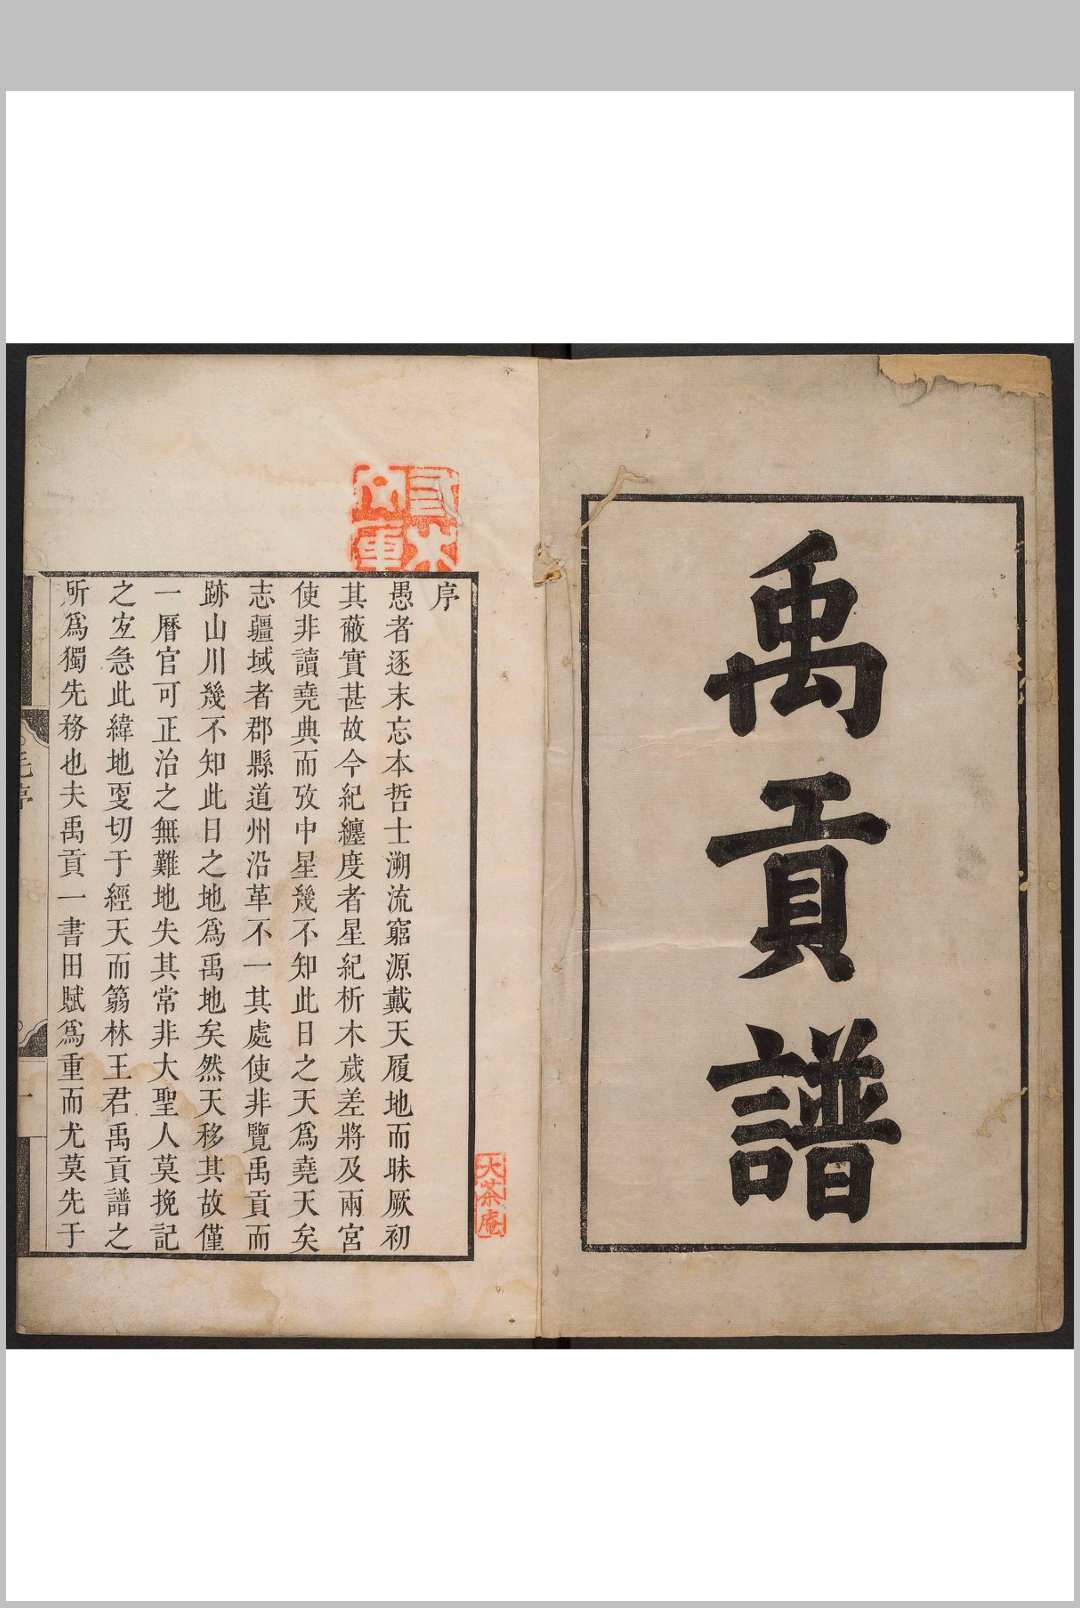 禹貢譜
序
愚者逐末忘本哲士溯流窮源戴天履地而昧厥初
其蔽實甚故今紀纏度者星紀析木歲差將及兩宮
使非讀堯典而攷中星幾不知此日之天爲堯天矣
志疆域者郡縣道州沿革不一其處使非覽禹貢而
跡山川幾不知此日之地爲禹地矣然天移其故僅
一曆官可正治之無難地失其常非大聖人莫挽記
之宐急此緯地㪅切于經天而篛林王君禹貢譜之
所爲獨先務也夫禹貢一書田賦爲重而尤莫先于
大茶庵
毛序
一